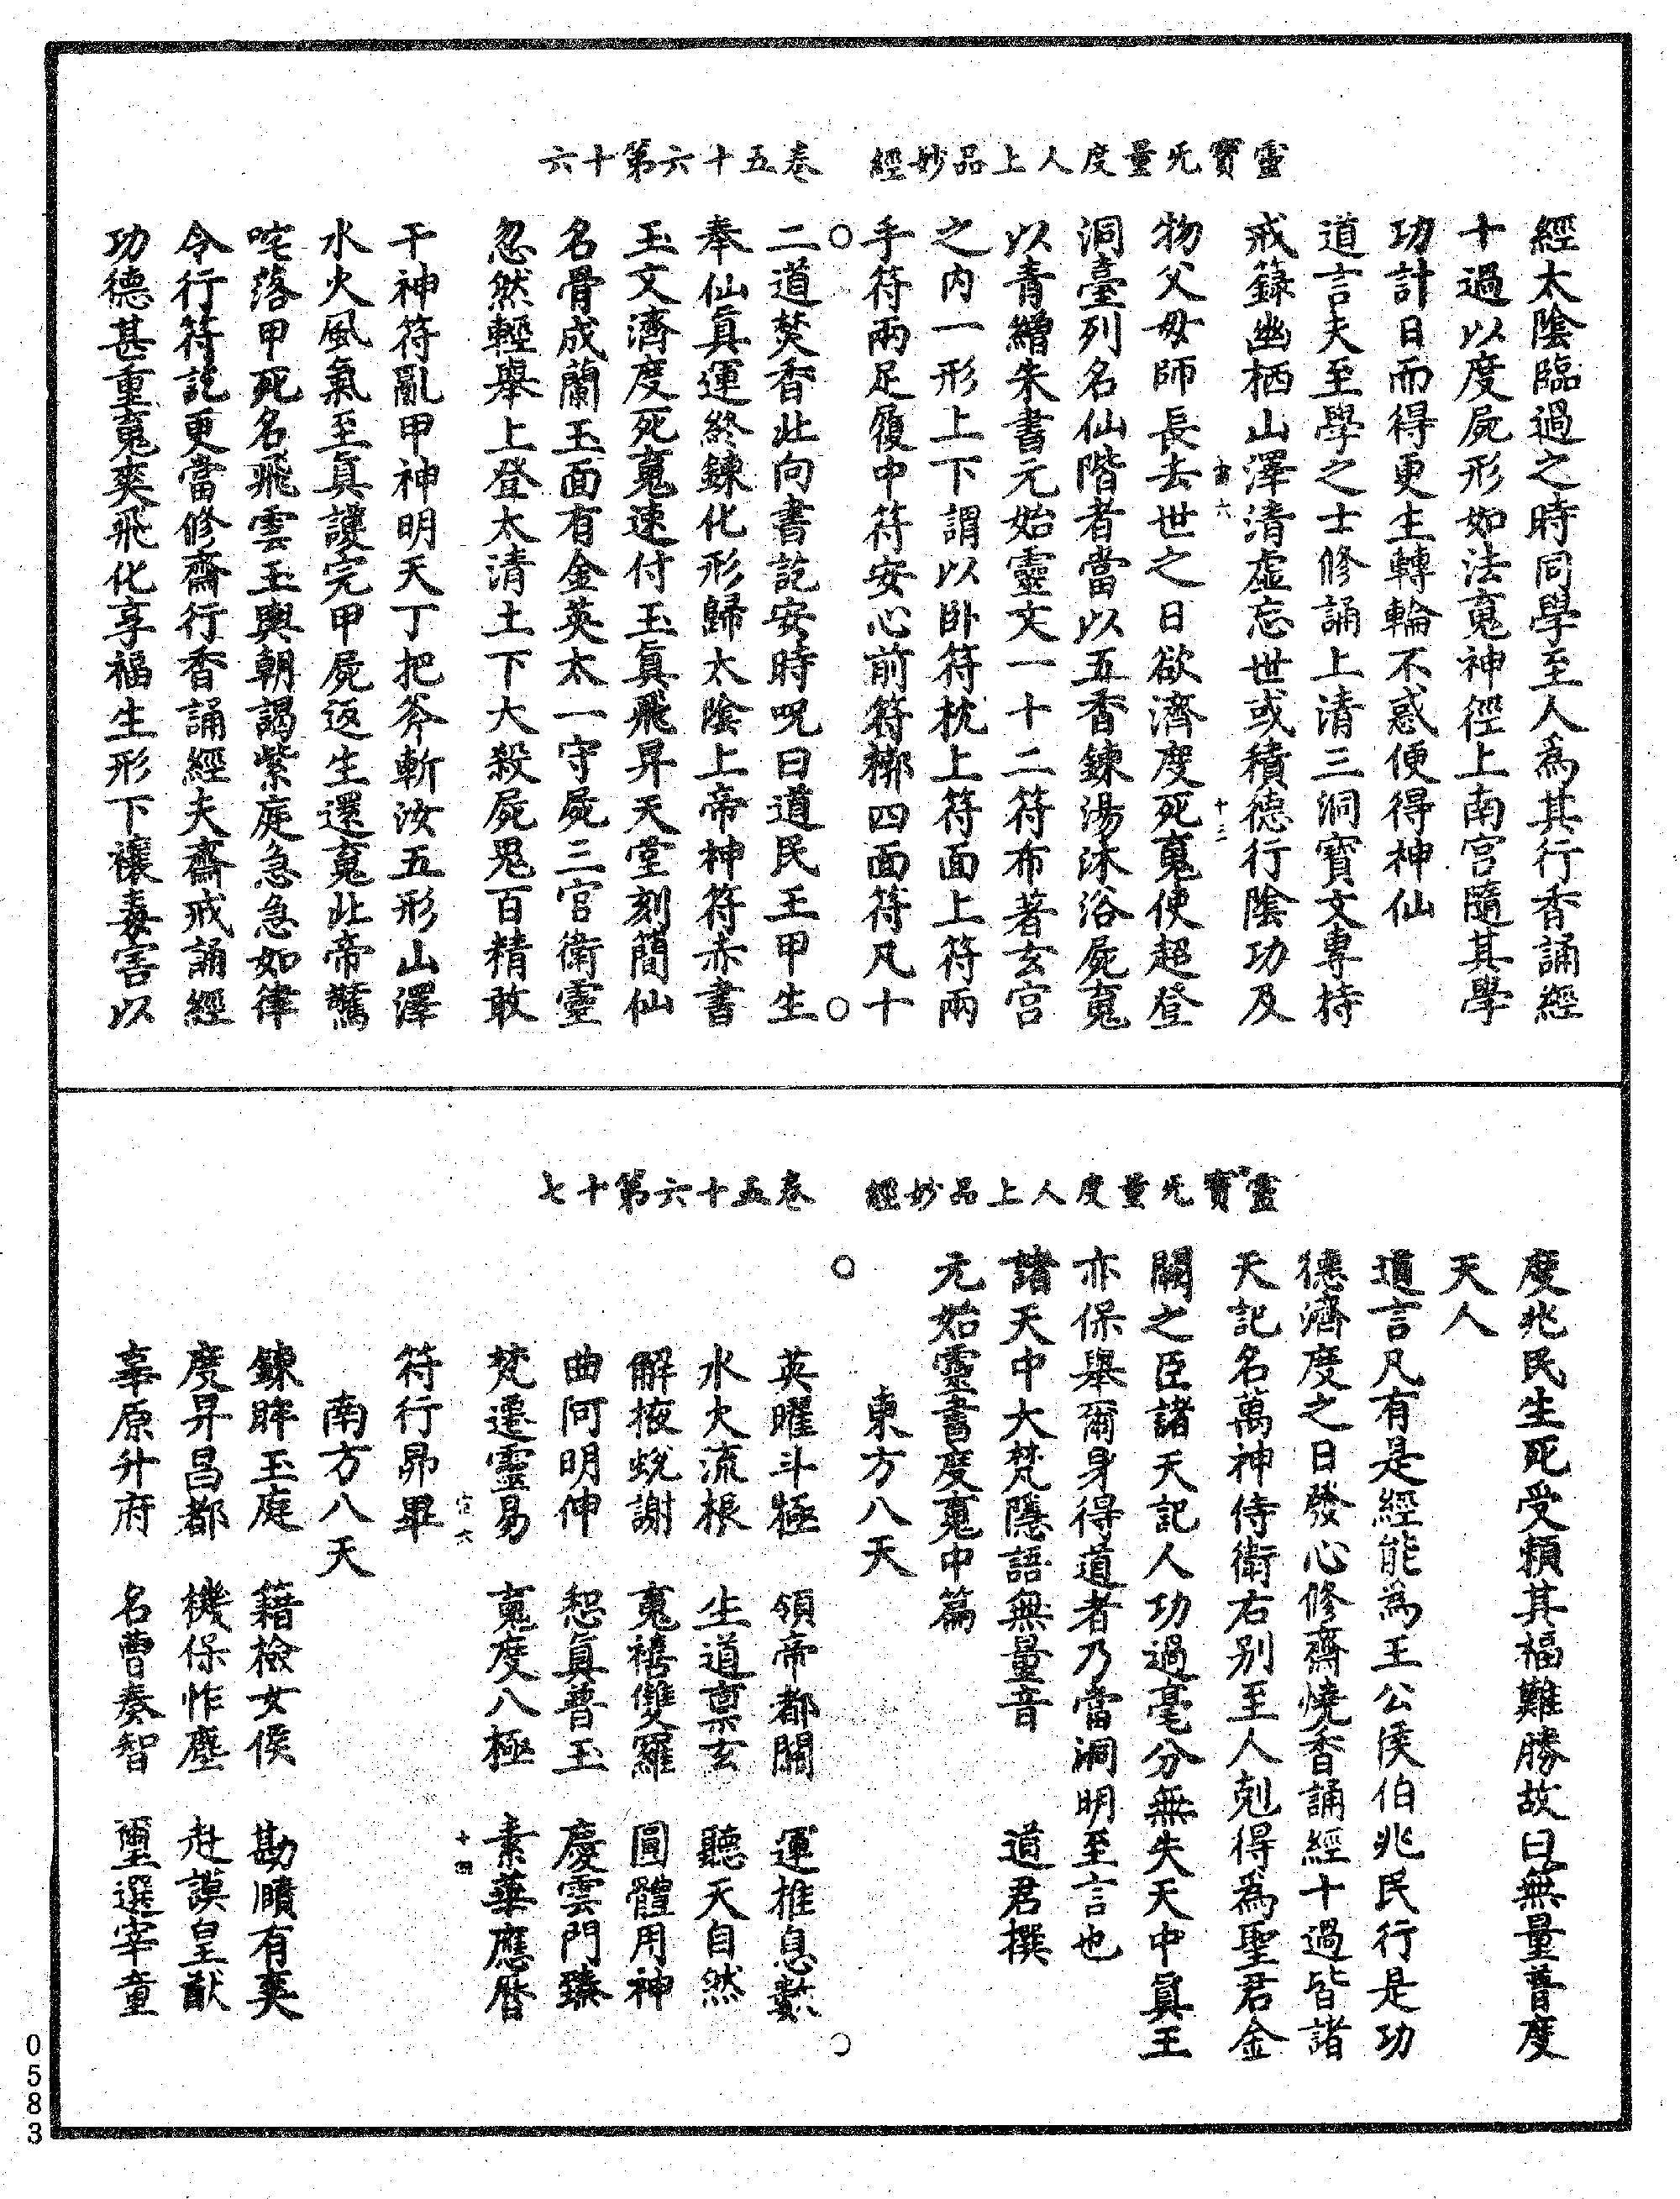 靈寶无量度人上品妙經　卷五十六第十六
經太陰臨過之時同學至人為其行香誦經
十過以度屍形如法䰟神徑上南宮隨其學
功計日而得更生轉輪不惑便得神仙
道言夫至學之士修誦上清三洞寶文專持
戒籙幽栖山澤清虛忘世或積德行陰功及
物父母師長去世之日欲濟度死䰟使超登
洞臺列名仙階者當以五香鍊湯沐浴屍䰟
以青繒朱書元始靈文一十二符布著玄宮
之內一形上下謂以卧符枕上符面上符兩
手符兩足履中符安心前符槨四面符凡十
二道焚香北向書訖安時呪曰道民王甲生
奉仙真運終鍊化形歸太陰上帝神符赤書
玉文濟度死䰟速付玉真飛昇天堂刻簡仙
名骨成蘭玉面有金英太一守屍三官衛靈
忽然輕舉上登太清土下大殺屍鬼百精敢
干神符亂甲神明天丁把斧斬汝五形山澤
水火風氣至真護完甲屍返生還䰟北帝驚
咤落甲死名飛雲玉輿朝謁紫庭急急如律
令行符訖更當修齋行香誦經夫齋戒誦經
功德甚重䰟爽飛化享福生形下禳毒害以
靈寶无量度人上品妙經　卷五十六第十七
度兆民生死受賴其福難勝故曰無量普度
天人
道言凡有是經能為王公侯伯兆民行是功
德濟度之日發心修齋燒香誦經十過皆諸
天記名萬神侍衛右別至人剋得為聖君金
闕之臣諸天記人功過毫分無失天中真王
亦保舉爾身得道者乃當洞明至言也
諸天中大梵隱語無量音　道君撰
元始靈書度䰟中篇
東方八天
英曜斗極　領帝都關　運推息數
水火流根　生道稟玄　聽天自然
解掖蛻謝　䰟禧雙羅　圓體用神
曲何明伸　恕真普玉　慶雲門臻
梵遷靈易　䰟度八極　素華應曆
符行昴畢
南方八天
鍊眸玉庭　籍檢女侯　勘賾有爽
度昇昌都　機保怍塵　赴謨皇猷
辜原升府　名曹奏智　璽選宰童
0583